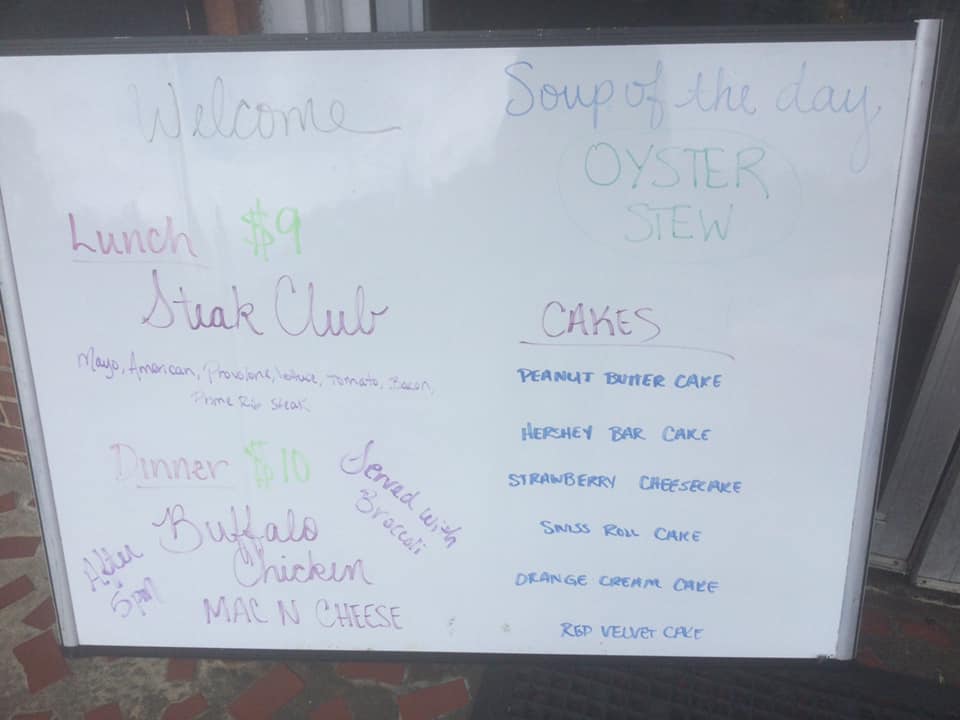 Welcome
Lunch $9
Steak Club
Mayo, American, Provolone, lettuce, Tomato, Bacon,
Prime Rib Steak
Dinner $10
Served with
Broccoli
Buffalo
Chicken
MAC N CHEESE
After
5pm
Soup of the day
OYSTER
STEW
CAKES
PEANUT BUTTER CAKE
HERSHEY BAR CAKE
STRAWBERRY CHEESECAKE
SWISS ROLL CAKE
ORANGE CREAM CAKE
RED VELVET CAKE